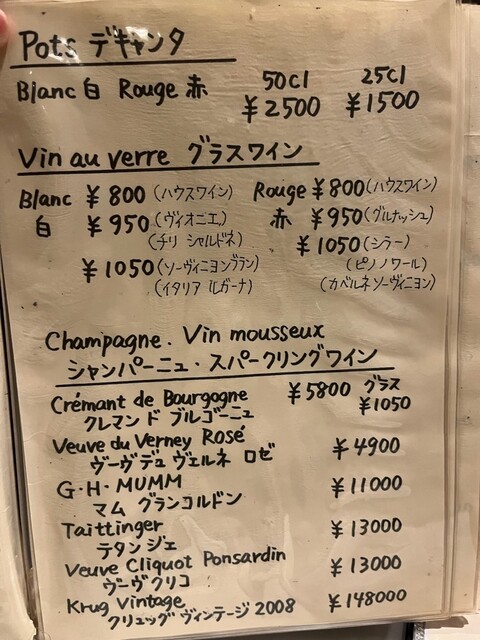 Pots デキャンタ
50cl 25cl
Blanc 白 Rouge 赤 ¥2500 ¥1500
Vin au verre グラスワイン
Blanc ¥800 (ハウスワイン) Rouge ¥800 (ハウスワイン)
白 ¥950 (ヴィオニエ) 赤 ¥950 (グルナッシュ)
(チリ シャルドネ) ¥1050 (シラー)
¥1050 (ソーヴィニヨンブラン) (ピノノワール)
(イタリア ルガーナ) (カベルネソーヴィニヨン)
Champagne. Vin mousseux
シャンパーニュ・スパークリングワイン
Crémant de Bourgogne ¥5800 グラス
クレマンド ブルゴーニュ ¥1050
Veuve du Verney Rosé ¥4900
ヴーヴデュ ヴェルネ ロゼ
G・H・MUMM ¥11000
マム グランコルドン
Taittinger ¥13000
テタンジェ
Veuve Cliquot Ponsardin ¥13000
ヴーヴクリコ
Krug Vintage ¥148000
クリュッグ ヴィンテージ 2008